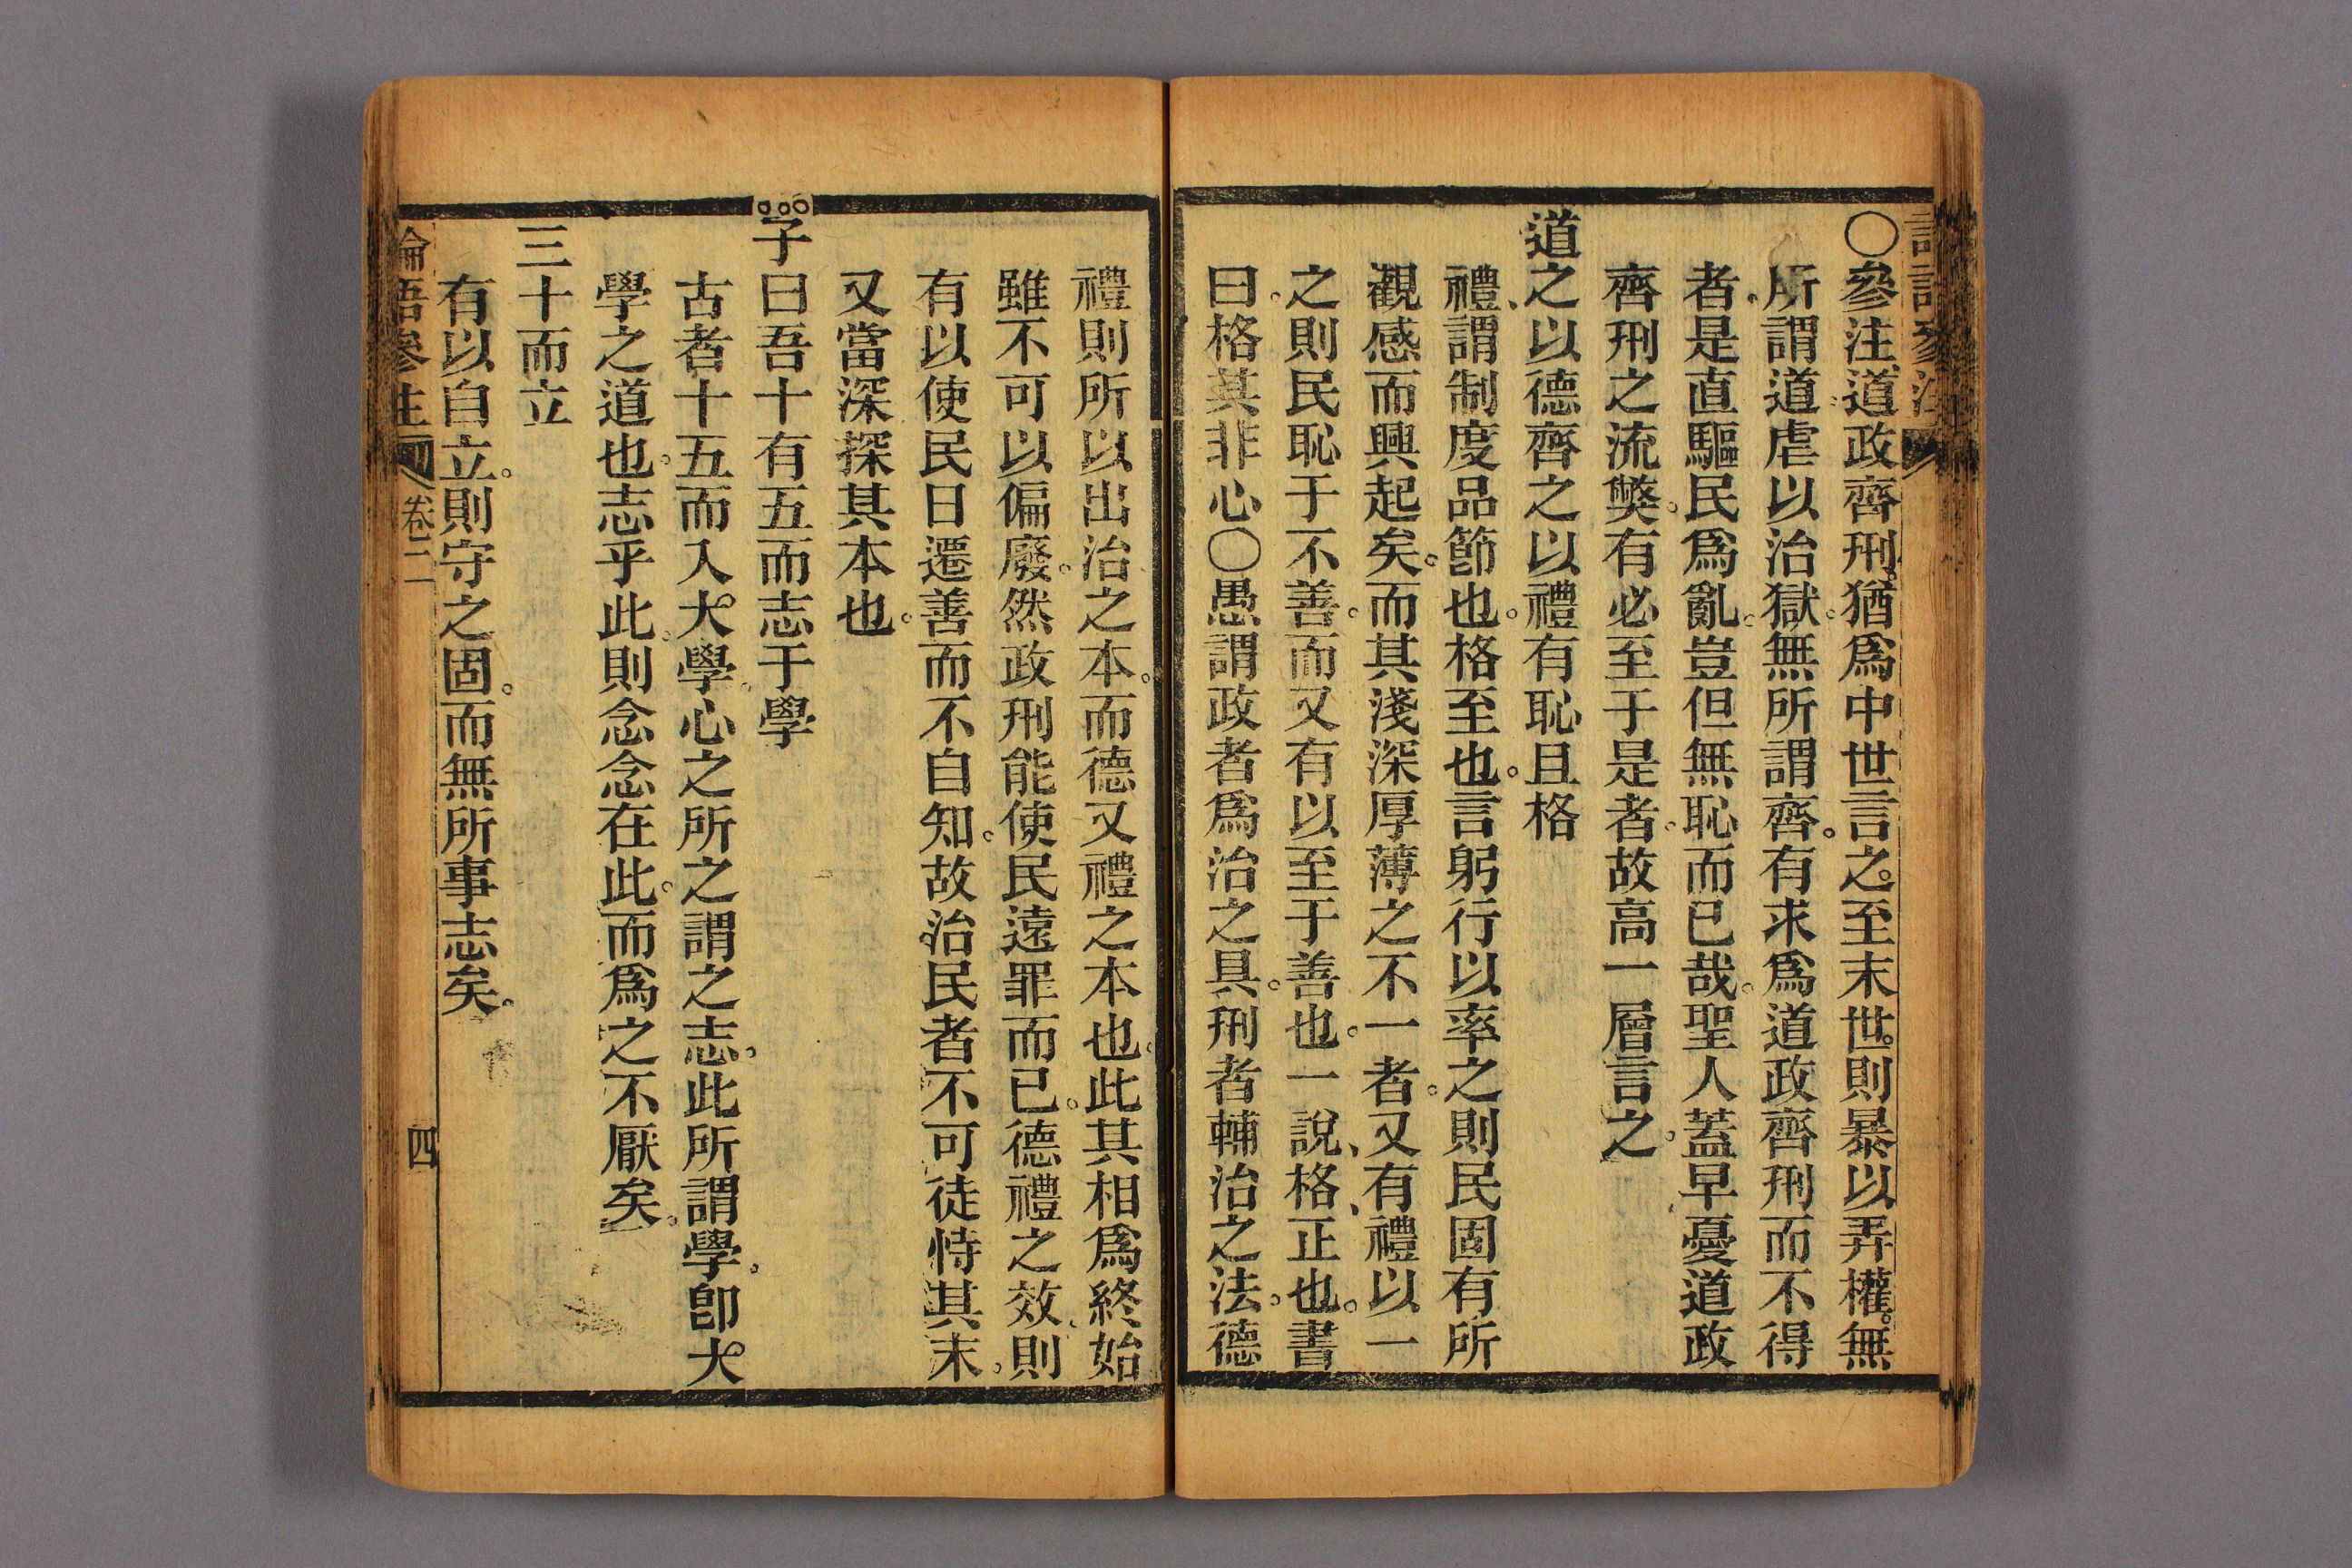 ○參注道政齊刑猶爲中世言之至末世則暴以弄權無
所謂道虐以治獄無所謂齊有求爲道政齊刑而不得
者是直驅民爲亂豈但無恥而已哉聖人蓋早憂道政
齊刑之流獘有必至于是者故高一層言之
道之以德齊之以禮有恥且格
禮謂制度品節也格至也言躬行以率之則民固有所
觀感而興起矣而其淺深厚薄之不一者又有禮以一
之則民恥于不善而又有以至于善也一說格正也書
曰格其非心○愚謂政者爲治之具刑者輔治之法德
禮則所以出治之本而德又禮之本也此其相爲終始
雖不可以偏廢然政刑能使民遠罪而已德禮之效則
有以使民日遷善而不自知故治民者不可徒恃其末
又當深探其本也
子曰吾十有五而志于學
古者十五而入大學心之所之謂之志此所謂學卽大
學之道也志乎此則念念在此而爲之不厭矣
三十而立
有以自立則守之固而無所事志矣
論語參注 卷二 四